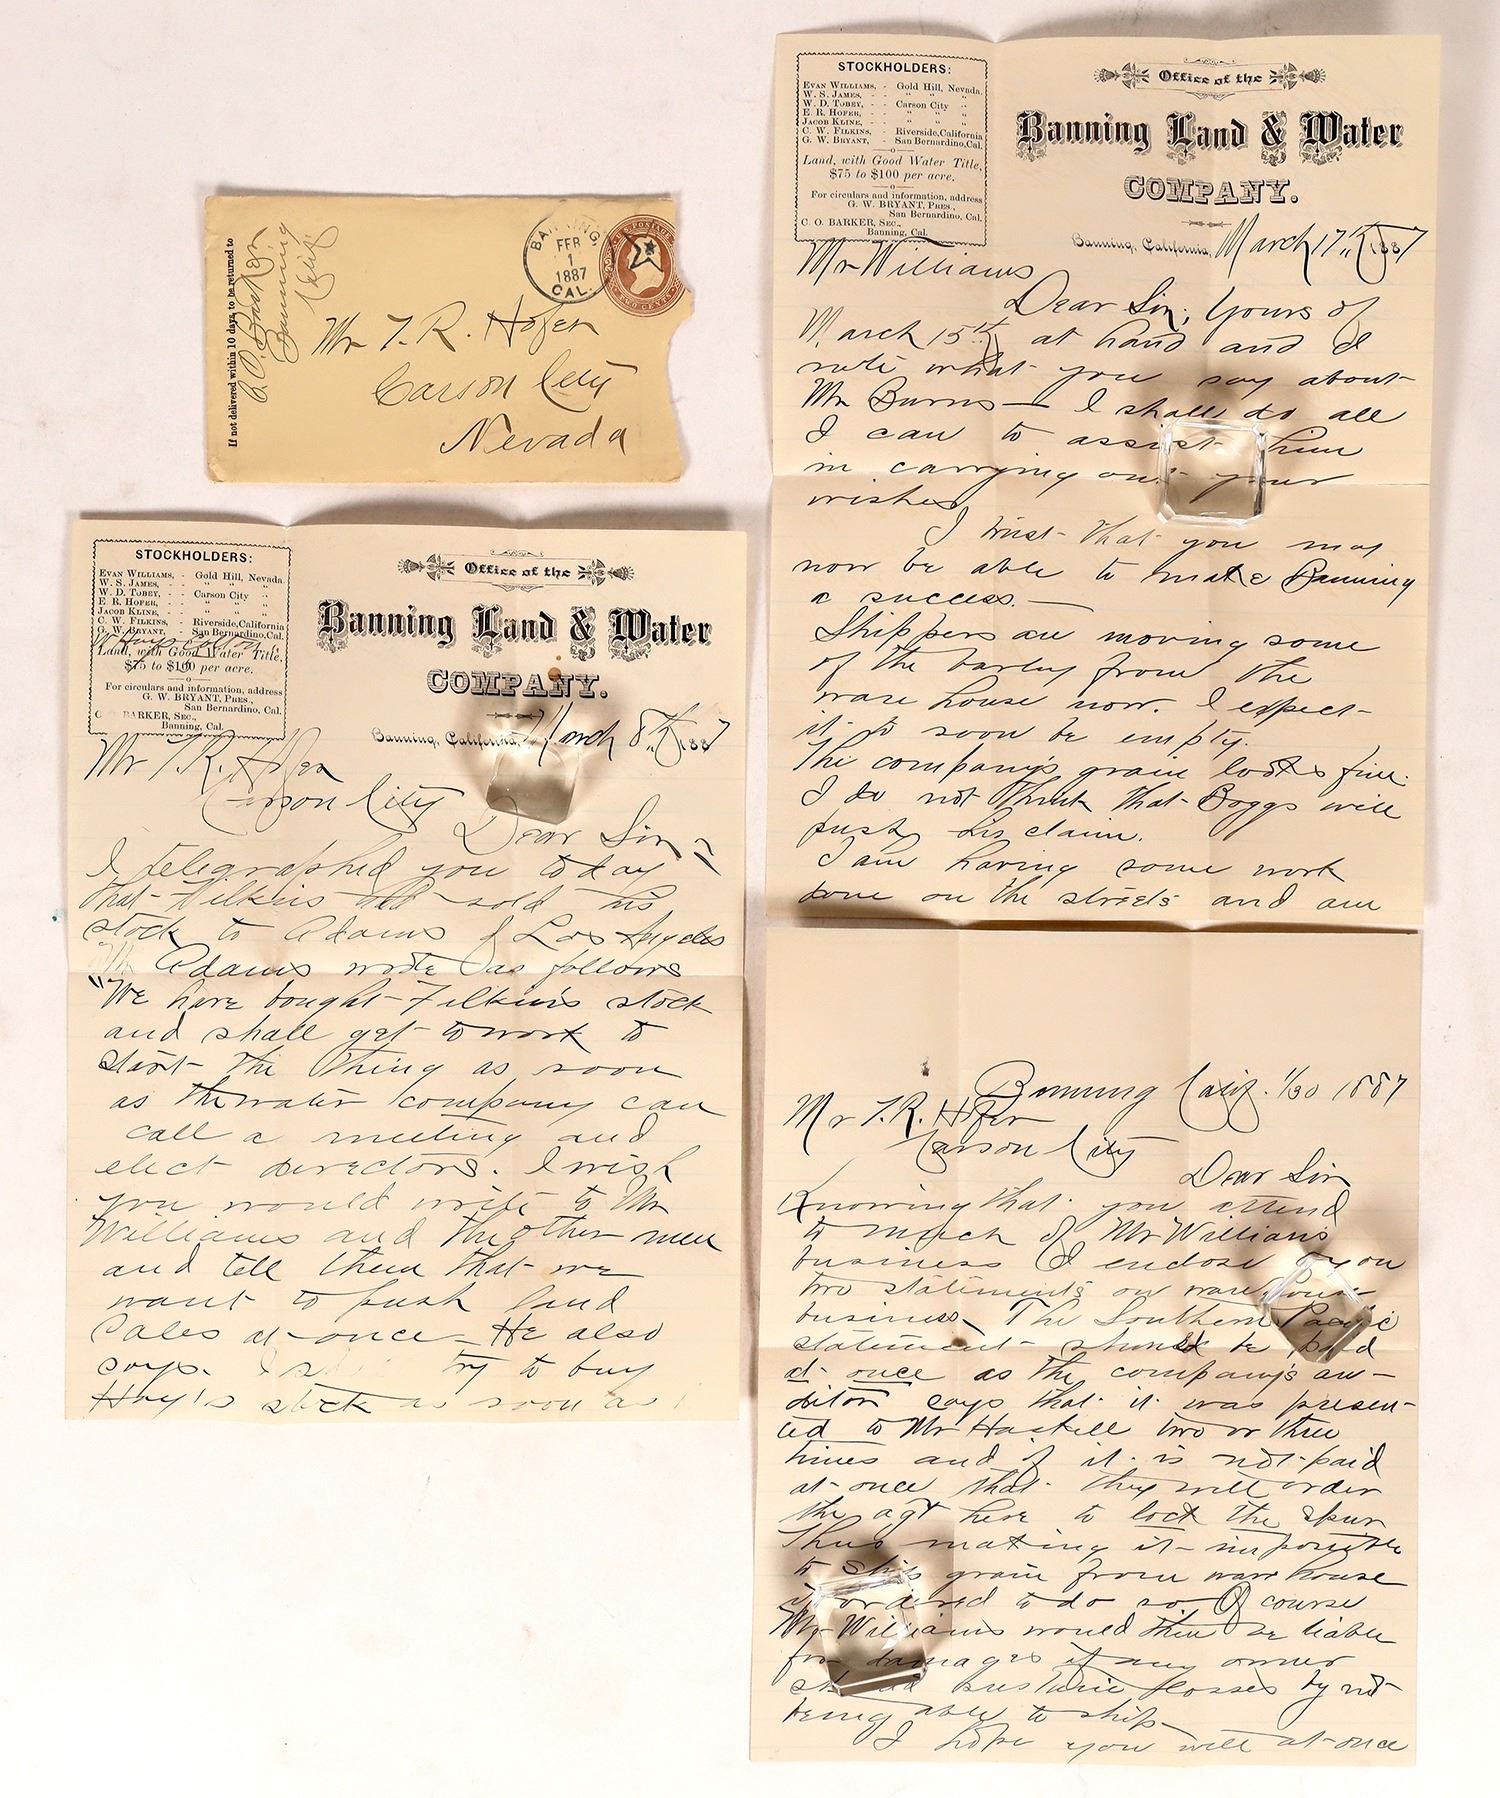 If not delivered within 10 days, to be returned to
C. O. Barker
Banning
Calif
BANNING
FEB
1
1887
CAL.
TWO CENTS
Mr T. R. Hofer
Carson City
Nevada
STOCKHOLDERS:
EVAN WILLIAMS, - - Gold Hill, Nevada.
W. S. JAMES, - - " " "
W. D. TOBEY, - - Carson City "
E. R. HOFER, - - " " "
JACOB KLINE, - - " " "
C. W. FILKINS, - Riverside, California
G. W. BRYANT, - San Bernardino, Cal.
Land, with Good Water Title,
$75 to $100 per acre.
For circulars and information, address
G. W. BRYANT, PRES.,
San Bernardino, Cal.
C. O. BARKER, SEC.,
Banning, Cal.
Office of the
Banning Land & Water
COMPANY.
Banning, California, March 17th 1887
Mr Williams
Dear Sir, Yours of
March 15th at hand and I
note what you say about
Mr Burns — I shall do all
I can to assist him
in carrying out your
wishes
I trust that you may
now be able to make Banning
a success. —
Shippers are moving some
of the barley from the
ware house now. I expect
it to soon be empty.
The company's grain looks fine.
I do not think that Boggs will
push his claim.
I am having some work
done on the streets and am
STOCKHOLDERS:
EVAN WILLIAMS, - - Gold Hill, Nevada.
W. S. JAMES, - - " " "
W. D. TOBEY, - - Carson City "
E. R. HOFER, - - " " "
JACOB KLINE, - - " " "
C. W. FILKINS, - Riverside, California
G. W. BRYANT, - San Bernardino, Cal.
Land, with Good Water Title,
$75 to $100 per acre.
For circulars and information, address
G. W. BRYANT, PRES.,
San Bernardino, Cal.
BARKER, SEC.,
Banning, Cal.
Office of the
Banning Land & Water
COMPANY.
Banning, California, March 8th 1887
Mr T. R. Hofer
Carson City
Dear Sir,
I telegraphed you today
that Filkins had sold his
stock to Adams of Los Angeles
Mr Adams wrote as follows
"We have bought Filkin's stock
and shall get to work to
start the thing as soon
as the water company can
call a meeting and
elect directors. I wish
you would write to Mr
Williams and the other men
and tell them that we
want to push land
sales at once — He also
says. I try to buy
Hay's stock as soon as
Banning Calif. 1/30 1887
Mr T. R. Hofer
Carson City
Dear Sir
Knowing that you attend
to much of Mr William's
business I enclose to you
two statements on ware house
business. The Southern Pacific
statement should be paid
at once as the company's au-
ditor says that it was presen-
ted to Mr Haskell two or three
times and if it is not paid
at once that they will order
the agt here to lock the spur
thus making it impossible
to ship grain from ware house
if ordered to do so. Of course
Mr Williams would then be liable
for damages if any owner
should sustain losses by not
being able to ship —
I hope you will at once